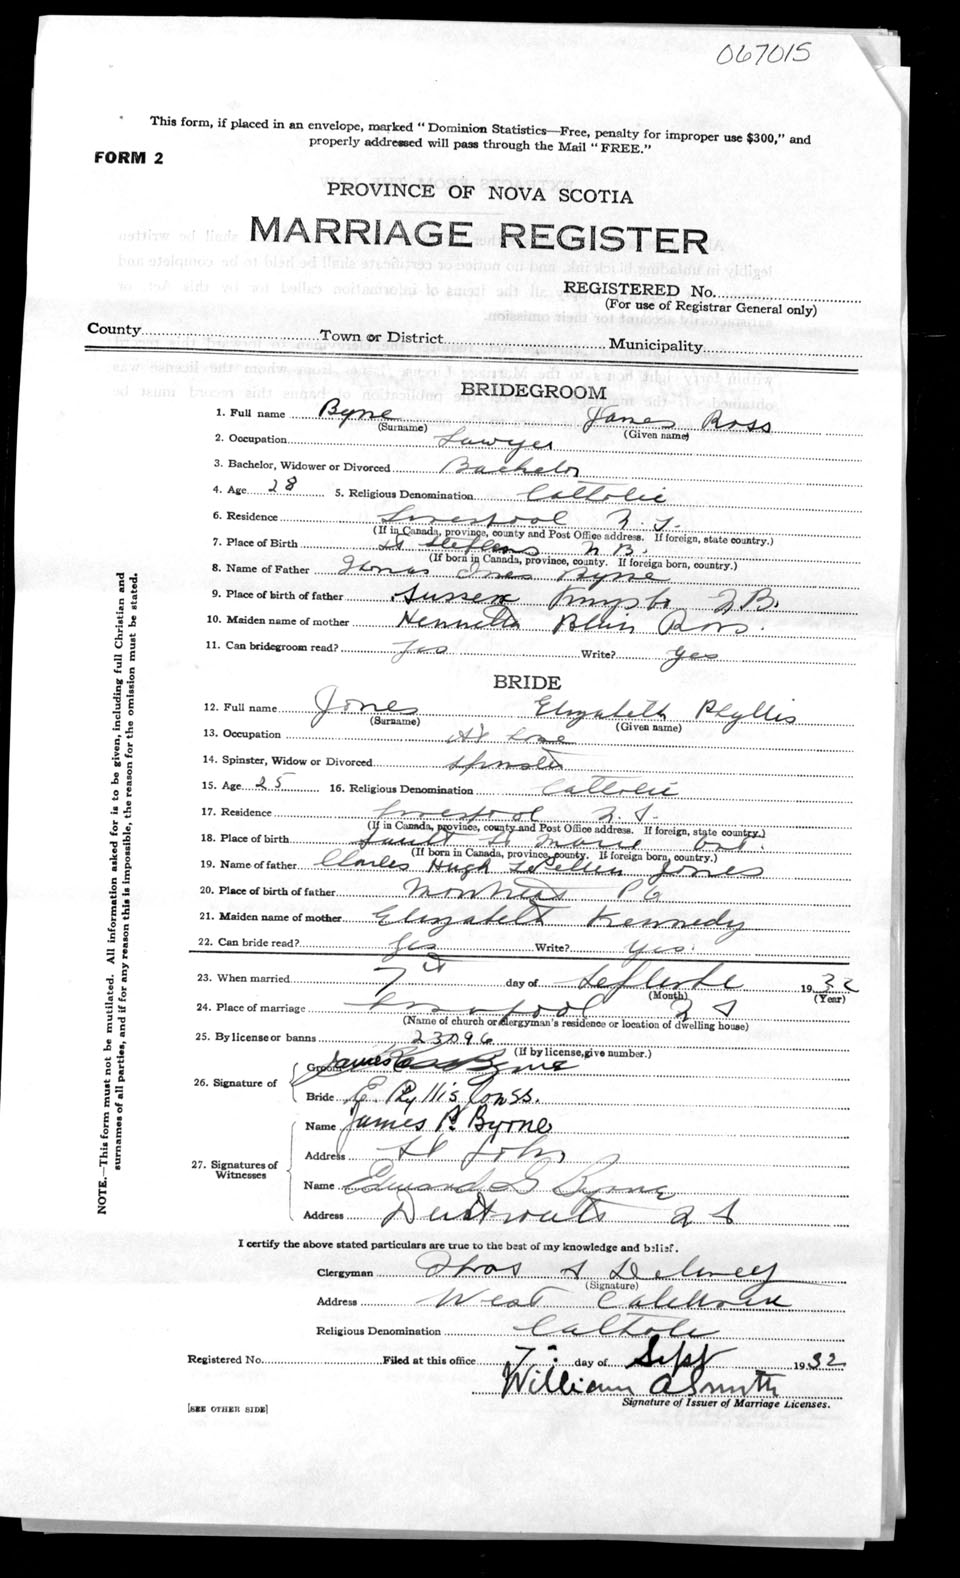 067015
This form, if placed in an envelope, marked "Dominion Statistics—Free, penalty for improper use $300," and
properly addressed will pass through the Mail "FREE."
FORM 2
PROVINCE OF NOVA SCOTIA
MARRIAGE REGISTER
REGISTERED No.
(For use of Registrar General only)
County Town or District Municipality
BRIDEGROOM
1. Full name Byrne James Ross
(Surname) (Given name)
2. Occupation Lawyer
3. Bachelor, Widower or Divorced Bachelor
4. Age 28 5. Religious Denomination Catholic
6. Residence Liverpool N.S.
(If in Canada, province, county and Post Office address. If foreign, state country.)
7. Place of Birth St Stephens N.B.
(If born in Canada, province, county. If foreign born, country.)
8. Name of Father Thomas Byrne
9. Place of birth of father Sussex N.B.
10. Maiden name of mother Henrietta Blair Ross.
11. Can bridegroom read? Yes Write? Yes
BRIDE
12. Full name Jones Elizabeth Phyllis
(Surname) (Given name)
13. Occupation At home
14. Spinster, Widow or Divorced Spinster
15. Age 25 16. Religious Denomination Catholic
17. Residence Liverpool N.S.
(If in Canada, province, county and Post Office address. If foreign, state country.)
18. Place of birth Sault St Marie Ont.
(If born in Canada, province, county. If foreign born, country.)
19. Name of father Charles Hugh Jones
20. Place of birth of father Montreal P Q
21. Maiden name of mother Elizabeth Kennedy
22. Can bride read? Yes Write? Yes.
23. When married 7th day of September 1932
(Month) (Year)
24. Place of marriage Liverpool N S
(Name of church or clergyman's residence or location of dwelling house)
25. By license or banns 23096
(If by license, give number.)
26. Signature of
Groom James Ross Byrne
Bride E. Phyllis Jones.
27. Signatures of Witnesses
Name James P. Byrne
Address St John
Name Edward G Byrne
Address N S
I certify the above stated particulars are true to the best of my knowledge and belief.
Clergyman Thos
(Signature)
Address West Caledonia
Religious Denomination Catholic
Registered No. Filed at this office 7 day of Sept 1932
William A Smith
Signature of Issuer of Marriage Licenses.
[SEE OTHER SIDE]
NOTE.—This form must not be mutilated. All information asked for is to be given, including full Christian and
surnames of all parties, and if for any reason this is impossible, the reason for the omission must be stated.